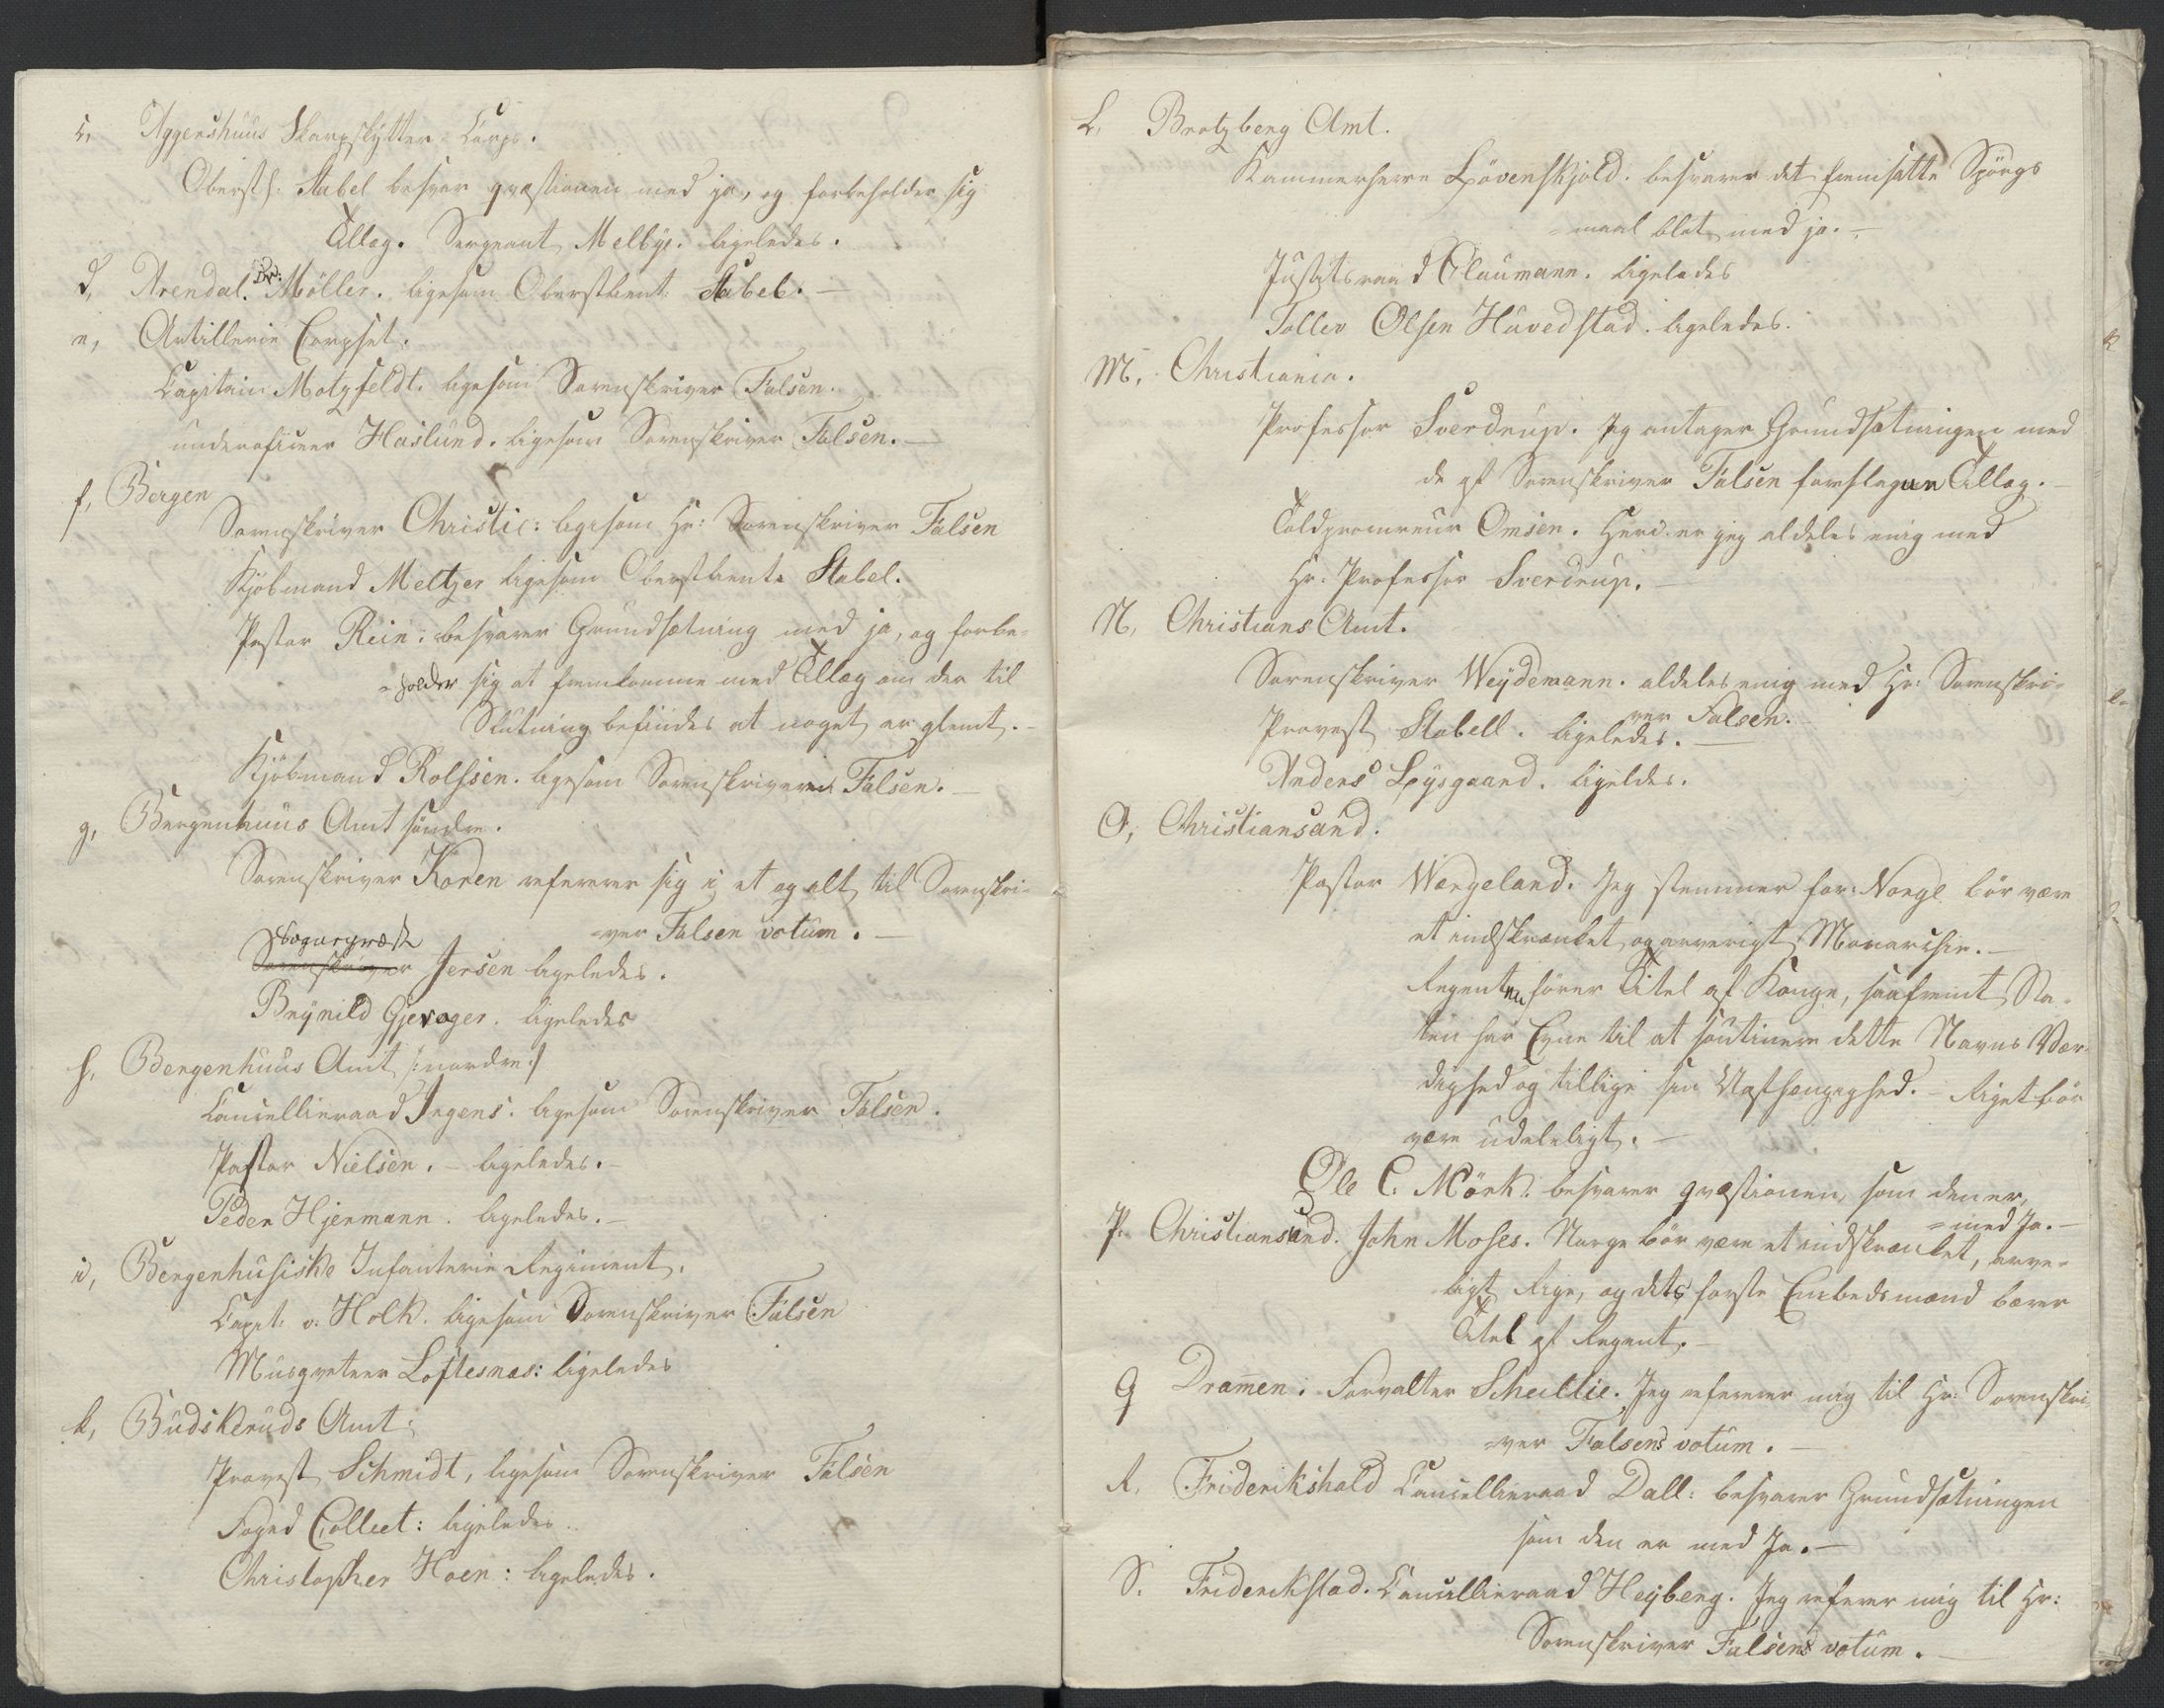 c, Aggershuus Skarpskytter Corps.
Oberstl: Stabel besvar qvæstionen med ja, og forbeholder sig
Tillæg. Sergeant Melbye. ligeledes.
d, Arendal. Dr: Möller. ligesom Oberstlieut: Stabel. —
e, Artillerie Corpset.
Capitain Motzfeldt. ligesom Sorenskriver Falsen.
underoficeer Haslund. ligesom Sorenskriver Falsen. —
f, Bergen
Sorenskriver Christie: ligesom Hr: Sorenskriver Falsen
Kjöbmand Meltzer ligesom Oberstlieut: Stabel.
Pastor Rein: besvarer Grundsætning med ja, og forbe-
-holder sig at fremkomme med Tillæg om der til
Slutning befindes at noget er glemt. —
Kjöbmand Rolfsen. ligesom Sorenskriveren Falsen. —
g, Bergenhuus Amt söndre.
Sorenskriver Koren refererer sig i et og alt til Sorenskri-
-ver Falsen votum. —
Sognepræst
Sorenskriver Jersen ligeledes.
Brynild Gjerager. ligeledes
h, Bergenhuus Amt /: nordre :/
Cancellieraad Irgens. ligesom Sorenskriver Falsen.
Pastor Nielsen. — ligeledes. —
Peder Hjermann. ligeledes. —
i, Bergenhusiske Infanterie Regiment.
Capt: v. Holk. ligesom Sorenskriver Falsen
Musqveteer Loftesnæs: ligeledes
k, Budskeruds Amt:
Provst Schmidt, ligesom Sorenskriver Falsen
Foged Collect: ligeledes.
Christopher Hoen: ligeledes.
L, Bratzberg Amt.
Kammerherre Lövenskjold. besvarer det fremsatte Spörgs
-maal blot med ja. —
Justitsraad Claumann. ligeledes
Tollev Olsen Huvedstad. ligeledes.
M, Christiania.
Professor Sverdrup. Jeg antager Grundsætningen med
de af Sorenskriver Falsen foreslagne Tillæg. —
Toldprocureur Omsen. Herud er jeg aldeles enig med
Hr: Professor Sverdrup. —
N, Christians Amt.
Sorenskriver Weydemann. aldeles enig med Hr: Sorenskri-
ver Falsen. —
Provst Stabell. ligeledes. —
Anders Lysgaard. ligeldes.
O, Christiansand.
Pastor Wergeland. Jeg stemmer for: Norge bör være
et indskrænket og arverigt Monarchie. —
Regenten förer Titel af Konge, saafremt Sta-
ten har Evne til at soutinere dette Navns Vær-
dighed og tillige sin Uafhængighed. — Riget bör
være udeleligt. —
Ole C. Mörk. besvarer qvæstionen, som den er,
-med Ja. —
P. Christiansund. John Moses. Norge bör være et indskrænket, arve-
ligt Rige, og dets förste Embedsmand bærer
Titel af Regent. —
Q Dramen: Forvalter Scheitlie. Jeg refererer mig til Hr: Sorenskri
-ver Falsens votum. —
R. Friderikshald Cancellieraad Dall: besvarer Grundsætningen
som den er med Ja. —
S. Friderikstad. Cancellieraad Heyberg. Jeg referer mig til Hr:
Sorenskriver Falsens votum. —